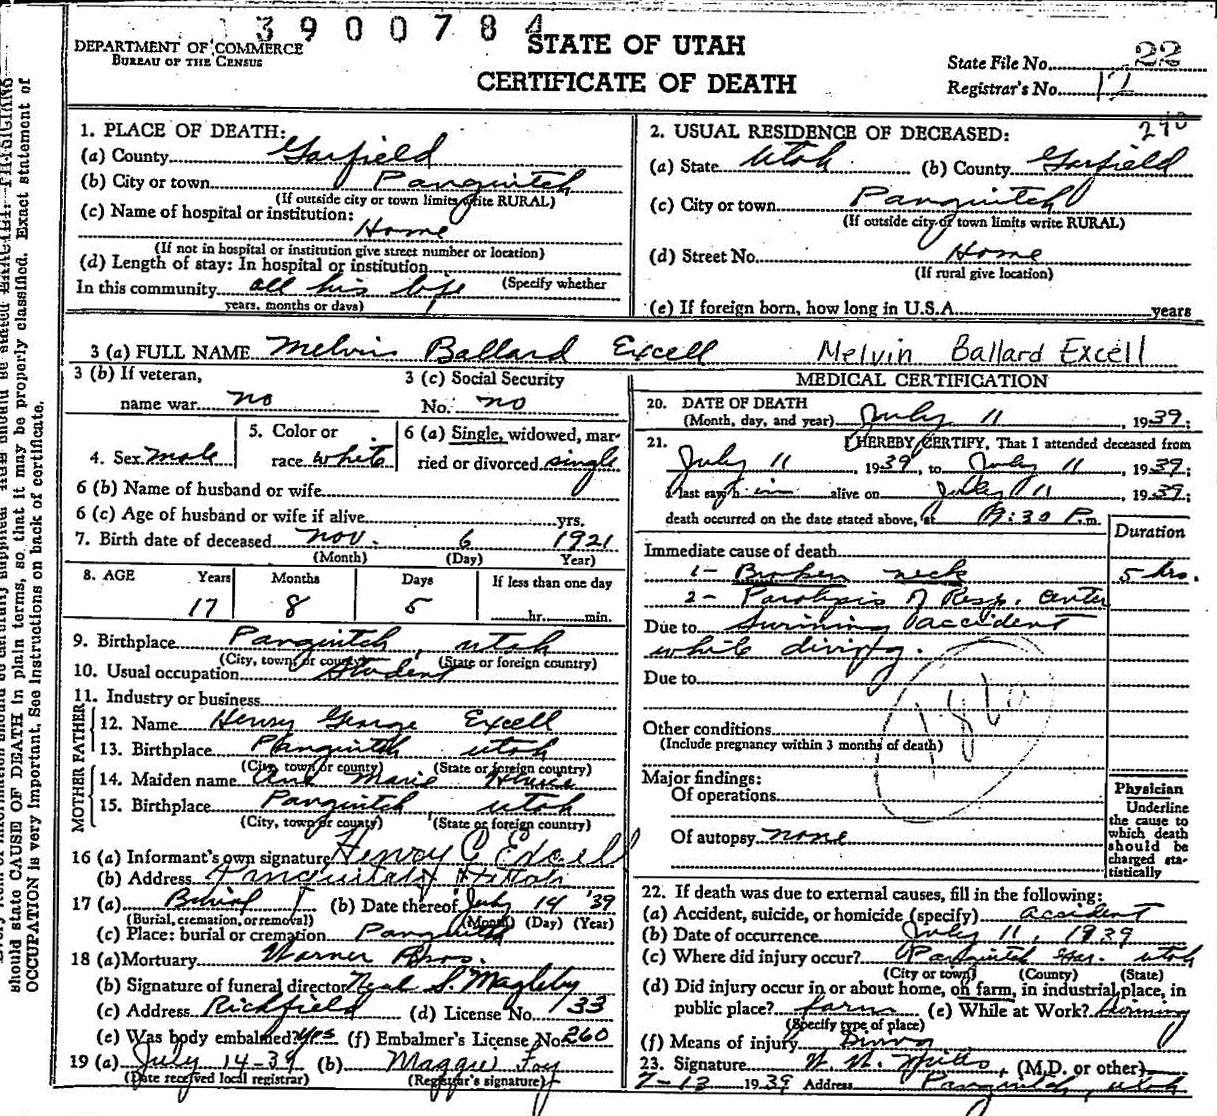 3900784
DEPARTMENT OF COMMERCE
BUREAU OF THE CENSUS
STATE OF UTAH
CERTIFICATE OF DEATH
State File No. 22
Registrar's No. 12
290
1. PLACE OF DEATH:
(a) County Garfield
(b) City or town Panguitch
(If outside city or town limits write RURAL)
(c) Name of hospital or institution:
Home
(If not in hospital or institution give street number or location)
(d) Length of stay: In hospital or institution
(Specify whether
In this community all his life
years, months or days)
2. USUAL RESIDENCE OF DECEASED:
(a) State Utah (b) County Garfield
(c) City or town Panguitch
(If outside city or town limits write RURAL)
(d) Street No. Home
(If rural give location)
(e) If foreign born, how long in U.S.A. years
3 (a) FULL NAME Melvin Ballard Excell Melvin Ballard Excell
3 (b) If veteran,
name war no
3 (c) Social Security
No. no
4. Sex male
5. Color or
race white
6 (a) Single, widowed, mar-
ried or divorced single
6 (b) Name of husband or wife
6 (c) Age of husband or wife if alive yrs.
7. Birth date of deceased Nov. 6 1921
(Month) (Day) Year)
8. AGE Years Months Days If less than one day
17 8 5 hr. min.
9. Birthplace Panguitch, Utah
(City, town, or county) (State or foreign country)
10. Usual occupation Student
11. Industry or business
FATHER
12. Name Henry George Excell
13. Birthplace Panguitch Utah
(City, town or county) (State or foreign country)
MOTHER
14. Maiden name Marie
15. Birthplace Panguitch Utah
(City, town or county) (State or foreign country)
16 (a) Informant's own signature Henry Excell
(b) Address Panguitch Utah
17 (a) Burial (b) Date thereof July 14 '39
(Burial, cremation, or removal) (Month) (Day) (Year)
(c) Place: burial or cremation Panguitch
18 (a) Mortuary Warner Bros.
(b) Signature of funeral director Neal S. Magleby
(c) Address Richfield (d) License No. 133
(e) Was body embalmed? yes (f) Embalmer's License No. 260
19 (a) July 14-39 (b) Maggie Foy
(Date received local registrar) (Registrar's signature)
MEDICAL CERTIFICATION
20. DATE OF DEATH
(Month, day, and year) July 11, 1939;
21. I HEREBY CERTIFY, That I attended deceased from
July 11, 1939, to July 11, 1939;
I last saw him alive on July 11, 1939;
death occurred on the date stated above, at :30 P.m.
Duration
Immediate cause of death
1- Broken neck 5 hrs.
2- Paralysis of Resp. center
Due to Swiming accident
while diving.
Due to
Other conditions
(Include pregnancy within 3 months of death)
Major findings:
Of operations
Of autopsy none
Physician
Underline
the cause to
which death
should be
charged sta-
tistically
22. If death was due to external causes, fill in the following:
(a) Accident, suicide, or homicide (specify) accident
(b) Date of occurrence July 11, 1939
(c) Where did injury occur? Panguitch Gar. Utah
(City or town) (County) (State)
(d) Did injury occur in or about home, on farm, in industrial place, in
public place? farm (e) While at Work?
(Specify type of place)
(f) Means of injury Diving
23. Signature (M.D. or other)
7-13 1939 Address Panguitch, Utah
should state CAUSE OF DEATH in plain terms, so that it may be properly classified. Exact statement of
OCCUPATION is very important. See instructions on back of certificate.